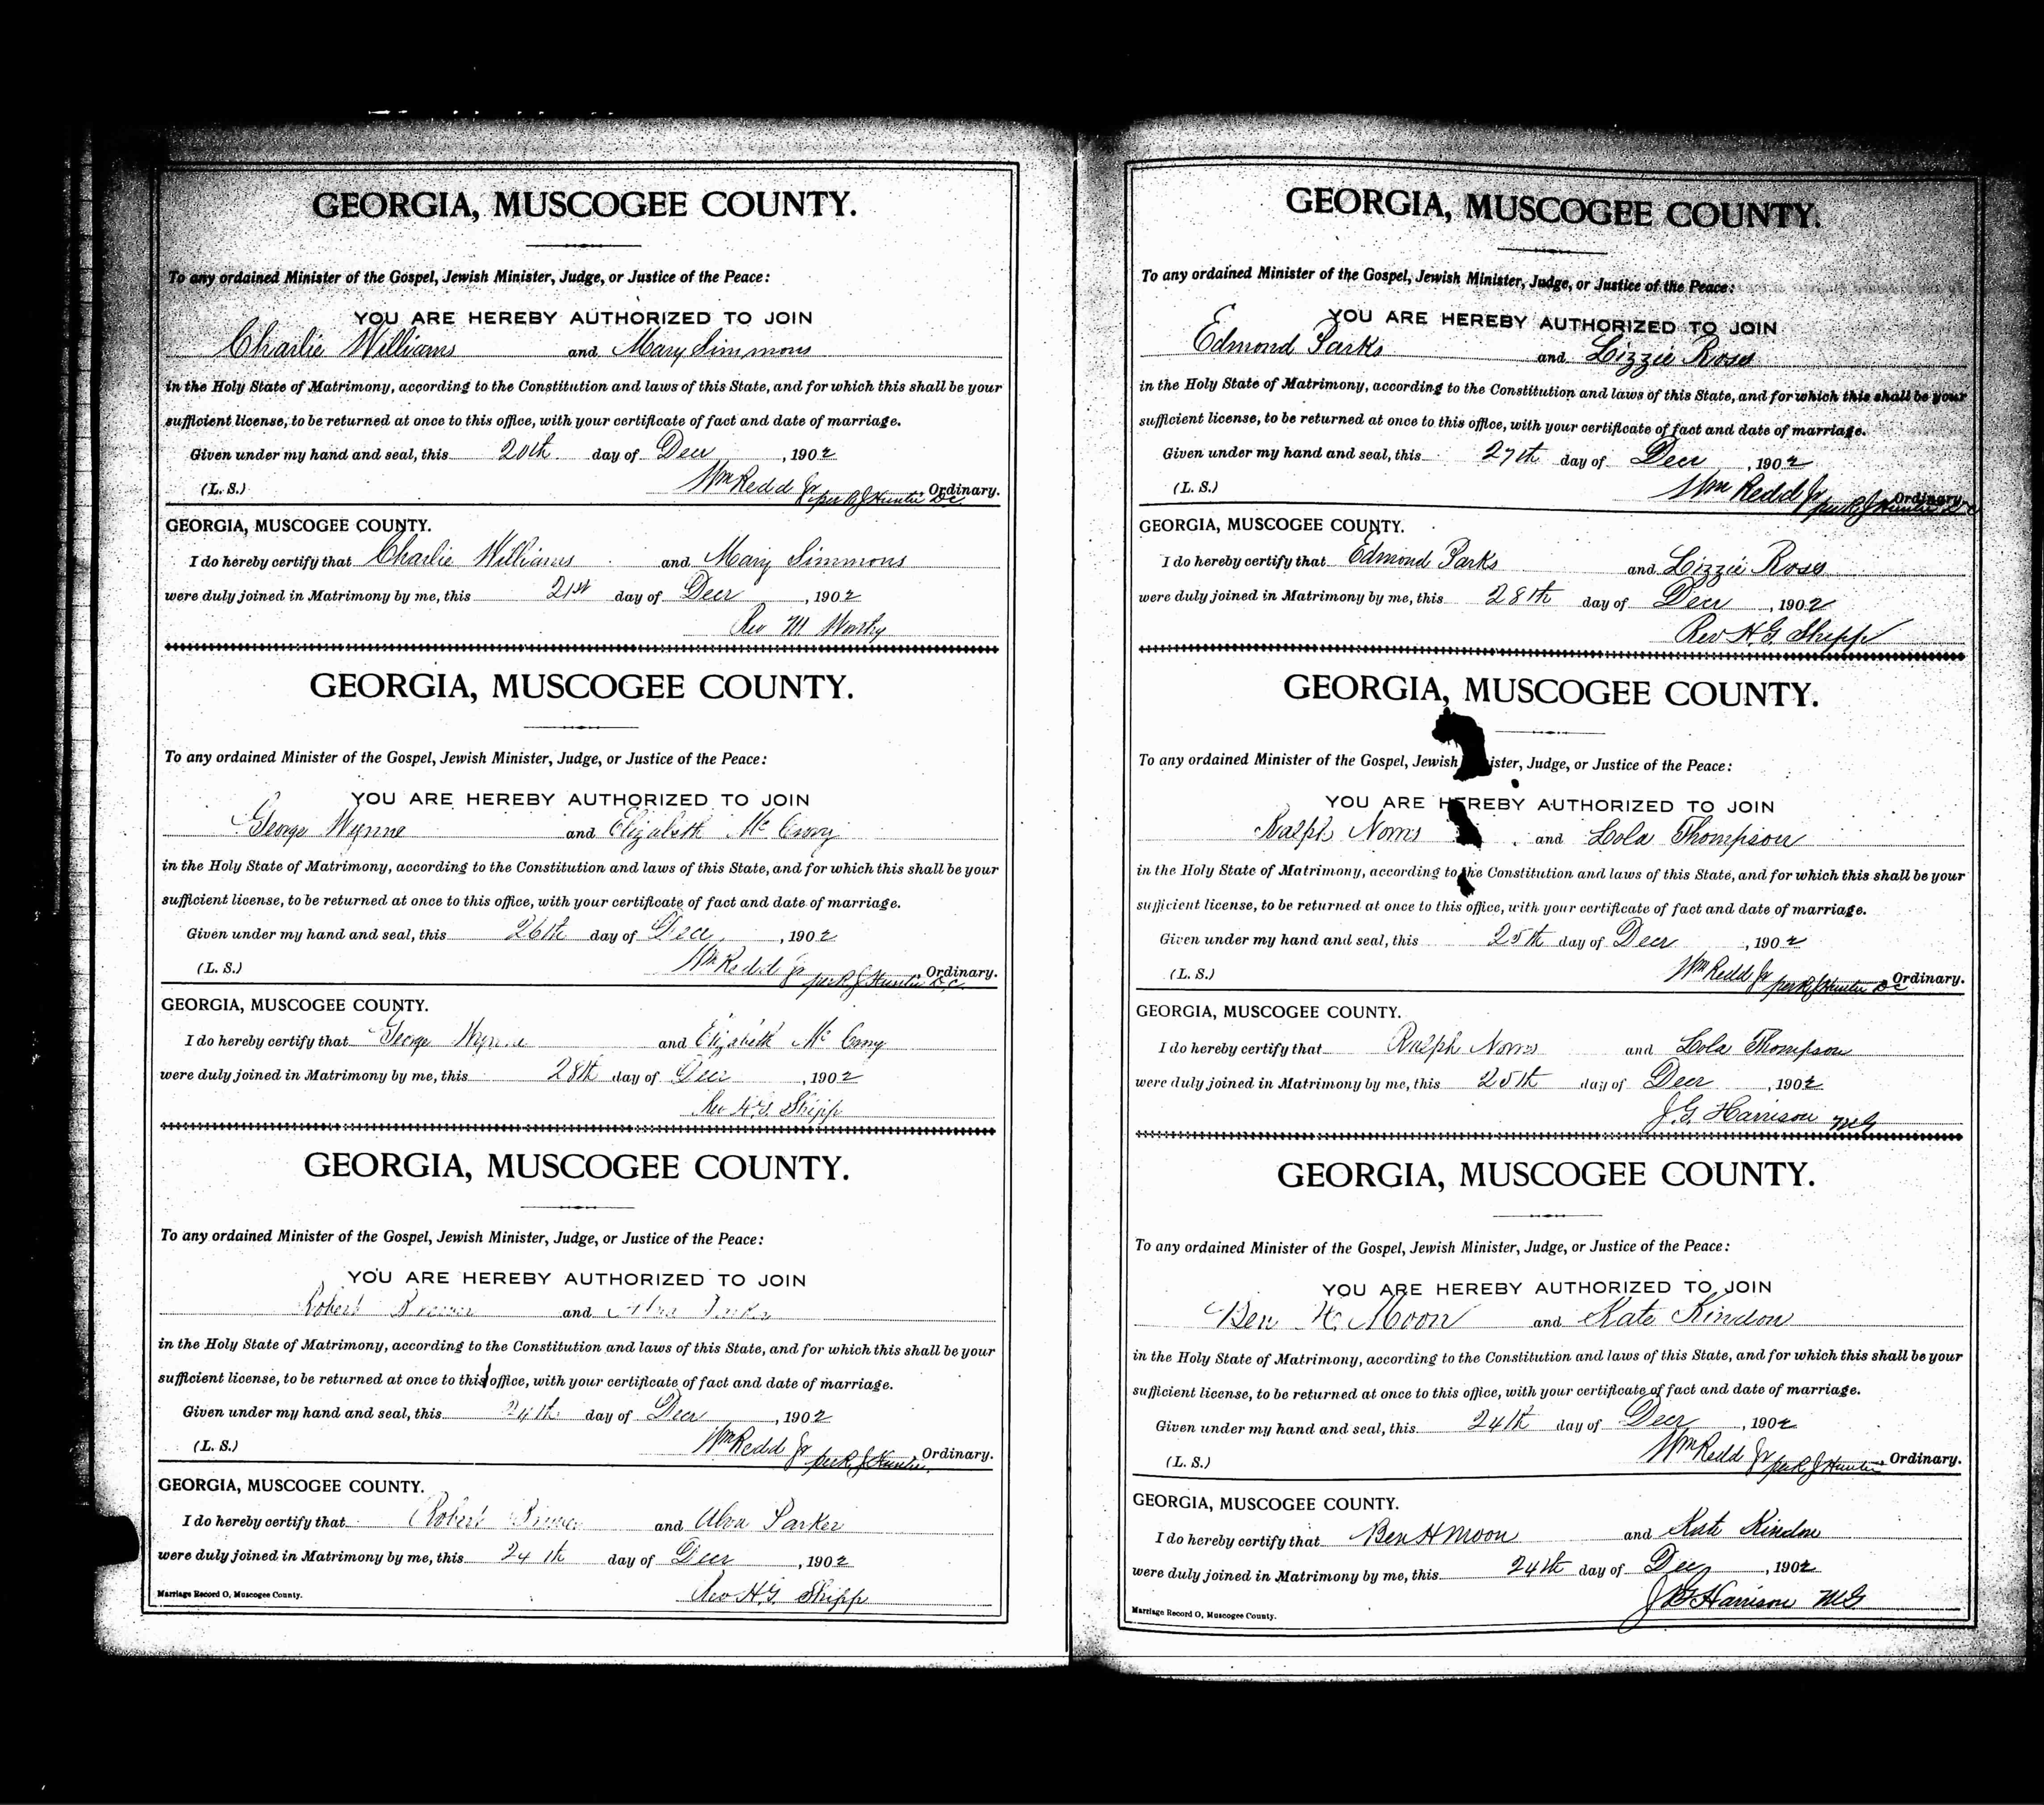 GEORGIA, MUSCOGEE COUNTY.
To any ordained Minister of the Gospel, Jewish Minister, Judge, or Justice of the Peace:
YOU ARE HEREBY AUTHORIZED TO JOIN
Charlie Williams and Mary Simmons
in the Holy State of Matrimony, according to the Constitution and laws of this State, and for which this shall be your
sufficient license, to be returned at once to this office, with your certificate of fact and date of marriage.
Given under my hand and seal, this 20th day of Decr, 1902
(L. S.) Wm Redd Jr per R J Hunter DC Ordinary.
GEORGIA, MUSCOGEE COUNTY.
I do hereby certify that Charlie Williams and Mary Simmons
were duly joined in Matrimony by me, this 21st day of Decr, 1902
Rev M
GEORGIA, MUSCOGEE COUNTY.
To any ordained Minister of the Gospel, Jewish Minister, Judge, or Justice of the Peace:
YOU ARE HEREBY AUTHORIZED TO JOIN
George Wynne and Elizabeth Mc
in the Holy State of Matrimony, according to the Constitution and laws of this State, and for which this shall be your
sufficient license, to be returned at once to this office, with your certificate of fact and date of marriage.
Given under my hand and seal, this 26th day of Decr, 1902
(L. S.) Wm Redd Jr per R J Hunter D.C. Ordinary.
GEORGIA, MUSCOGEE COUNTY.
I do hereby certify that George Wynne and Elizabeth Mc
were duly joined in Matrimony by me, this 28th day of Decr, 1902
Rev H.G. Shipp
GEORGIA, MUSCOGEE COUNTY.
To any ordained Minister of the Gospel, Jewish Minister, Judge, or Justice of the Peace:
YOU ARE HEREBY AUTHORIZED TO JOIN
Robert and Alva Parker
in the Holy State of Matrimony, according to the Constitution and laws of this State, and for which this shall be your
sufficient license, to be returned at once to this office, with your certificate of fact and date of marriage.
Given under my hand and seal, this 24th day of Decr, 1902
(L. S.) Wm Redd Jr per R J Hunter, Ordinary.
GEORGIA, MUSCOGEE COUNTY.
I do hereby certify that Robert and Alva Parker
were duly joined in Matrimony by me, this 24th day of Decr, 1902
Rev H.G. Shipp
Marriage Record O, Muscogee County.
GEORGIA, MUSCOGEE COUNTY.
To any ordained Minister of the Gospel, Jewish Minister, Judge, or Justice of the Peace:
YOU ARE HEREBY AUTHORIZED TO JOIN
Edmond Parks and Lizzie Ross
in the Holy State of Matrimony, according to the Constitution and laws of this State, and for which this shall be your
sufficient license, to be returned at once to this office, with your certificate of fact and date of marriage.
Given under my hand and seal, this 27th day of Decr, 1902
(L. S.) Wm Redd Jr per R J Hunter DC Ordinary.
GEORGIA, MUSCOGEE COUNTY.
I do hereby certify that Edmond Parks and Lizzie Ross
were duly joined in Matrimony by me, this 28th day of Decr, 1902
Rev H.G. Shipp
GEORGIA, MUSCOGEE COUNTY.
To any ordained Minister of the Gospel, Jewish Minister, Judge, or Justice of the Peace:
YOU ARE HEREBY AUTHORIZED TO JOIN
Ralph Norris and Lola Thompson
in the Holy State of Matrimony, according to the Constitution and laws of this State, and for which this shall be your
sufficient license, to be returned at once to this office, with your certificate of fact and date of marriage.
Given under my hand and seal, this 25th day of Decr, 1902
(L. S.) Wm Redd Jr per R J Hunter DC Ordinary.
GEORGIA, MUSCOGEE COUNTY.
I do hereby certify that Ralph Norris and Lola Thompson
were duly joined in Matrimony by me, this 25th day of Decr, 1902
J.G. Harrison MG
GEORGIA, MUSCOGEE COUNTY.
To any ordained Minister of the Gospel, Jewish Minister, Judge, or Justice of the Peace:
YOU ARE HEREBY AUTHORIZED TO JOIN
Ben H. Moon and Kate Kindon
in the Holy State of Matrimony, according to the Constitution and laws of this State, and for which this shall be your
sufficient license, to be returned at once to this office, with your certificate of fact and date of marriage.
Given under my hand and seal, this 24th day of Decr, 1902
(L. S.) Wm Redd Jr per R J Hunter Ordinary.
GEORGIA, MUSCOGEE COUNTY.
I do hereby certify that Ben H Moon and Kate Kindon
were duly joined in Matrimony by me, this 24th day of Dec, 1902
J G Harrison M.G.
Marriage Record O, Muscogee County.